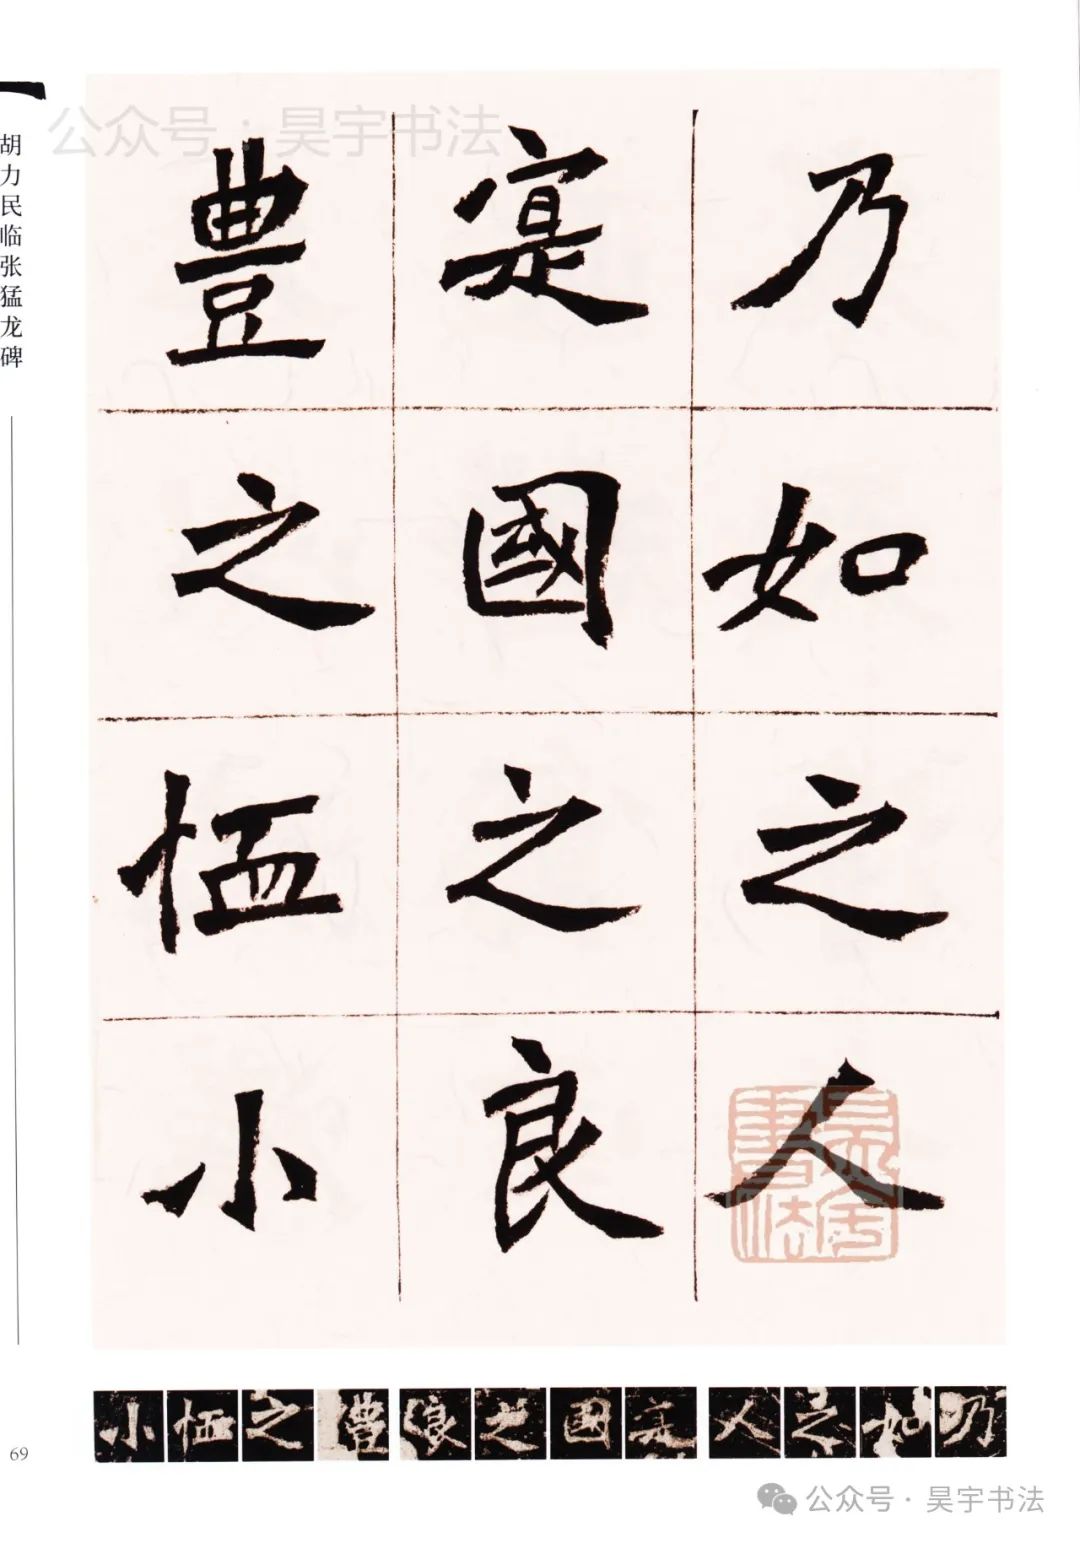 公众号 · 昊宇书法
胡力民临张猛龙碑
乃如之人
寔國之良
豊之恤小
昊宇書法
乃如之人寔國之良豊之恤小
69
公众号 · 昊宇书法